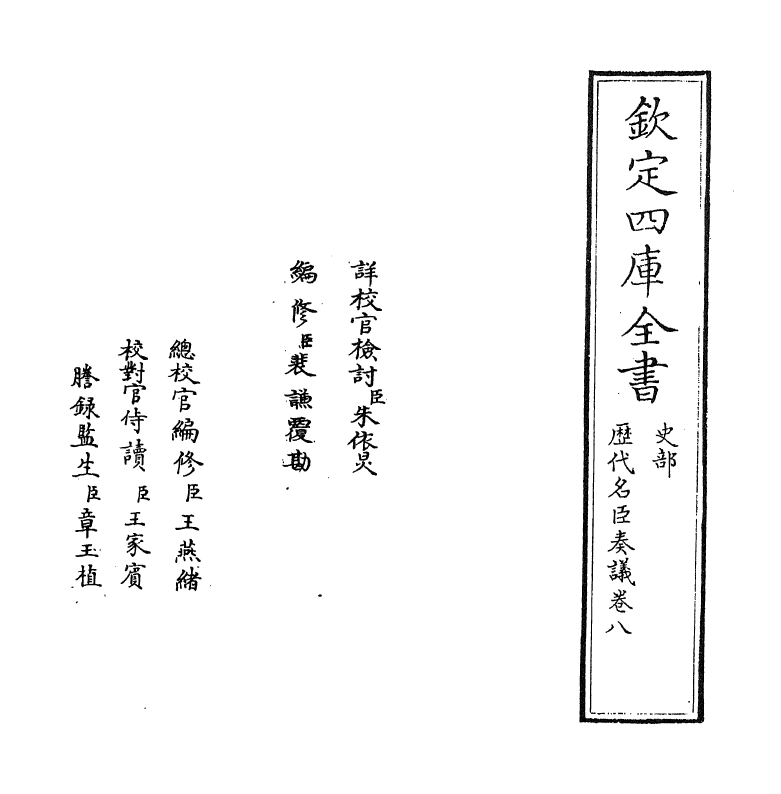 欽定四庫全書
史部
歴代名臣奏議卷八
詳校官檢討臣朱依炅
編修臣裴謙覆勘
總校官編修臣王燕緒
校對官侍讀臣王家賓
謄録監生臣章玉植